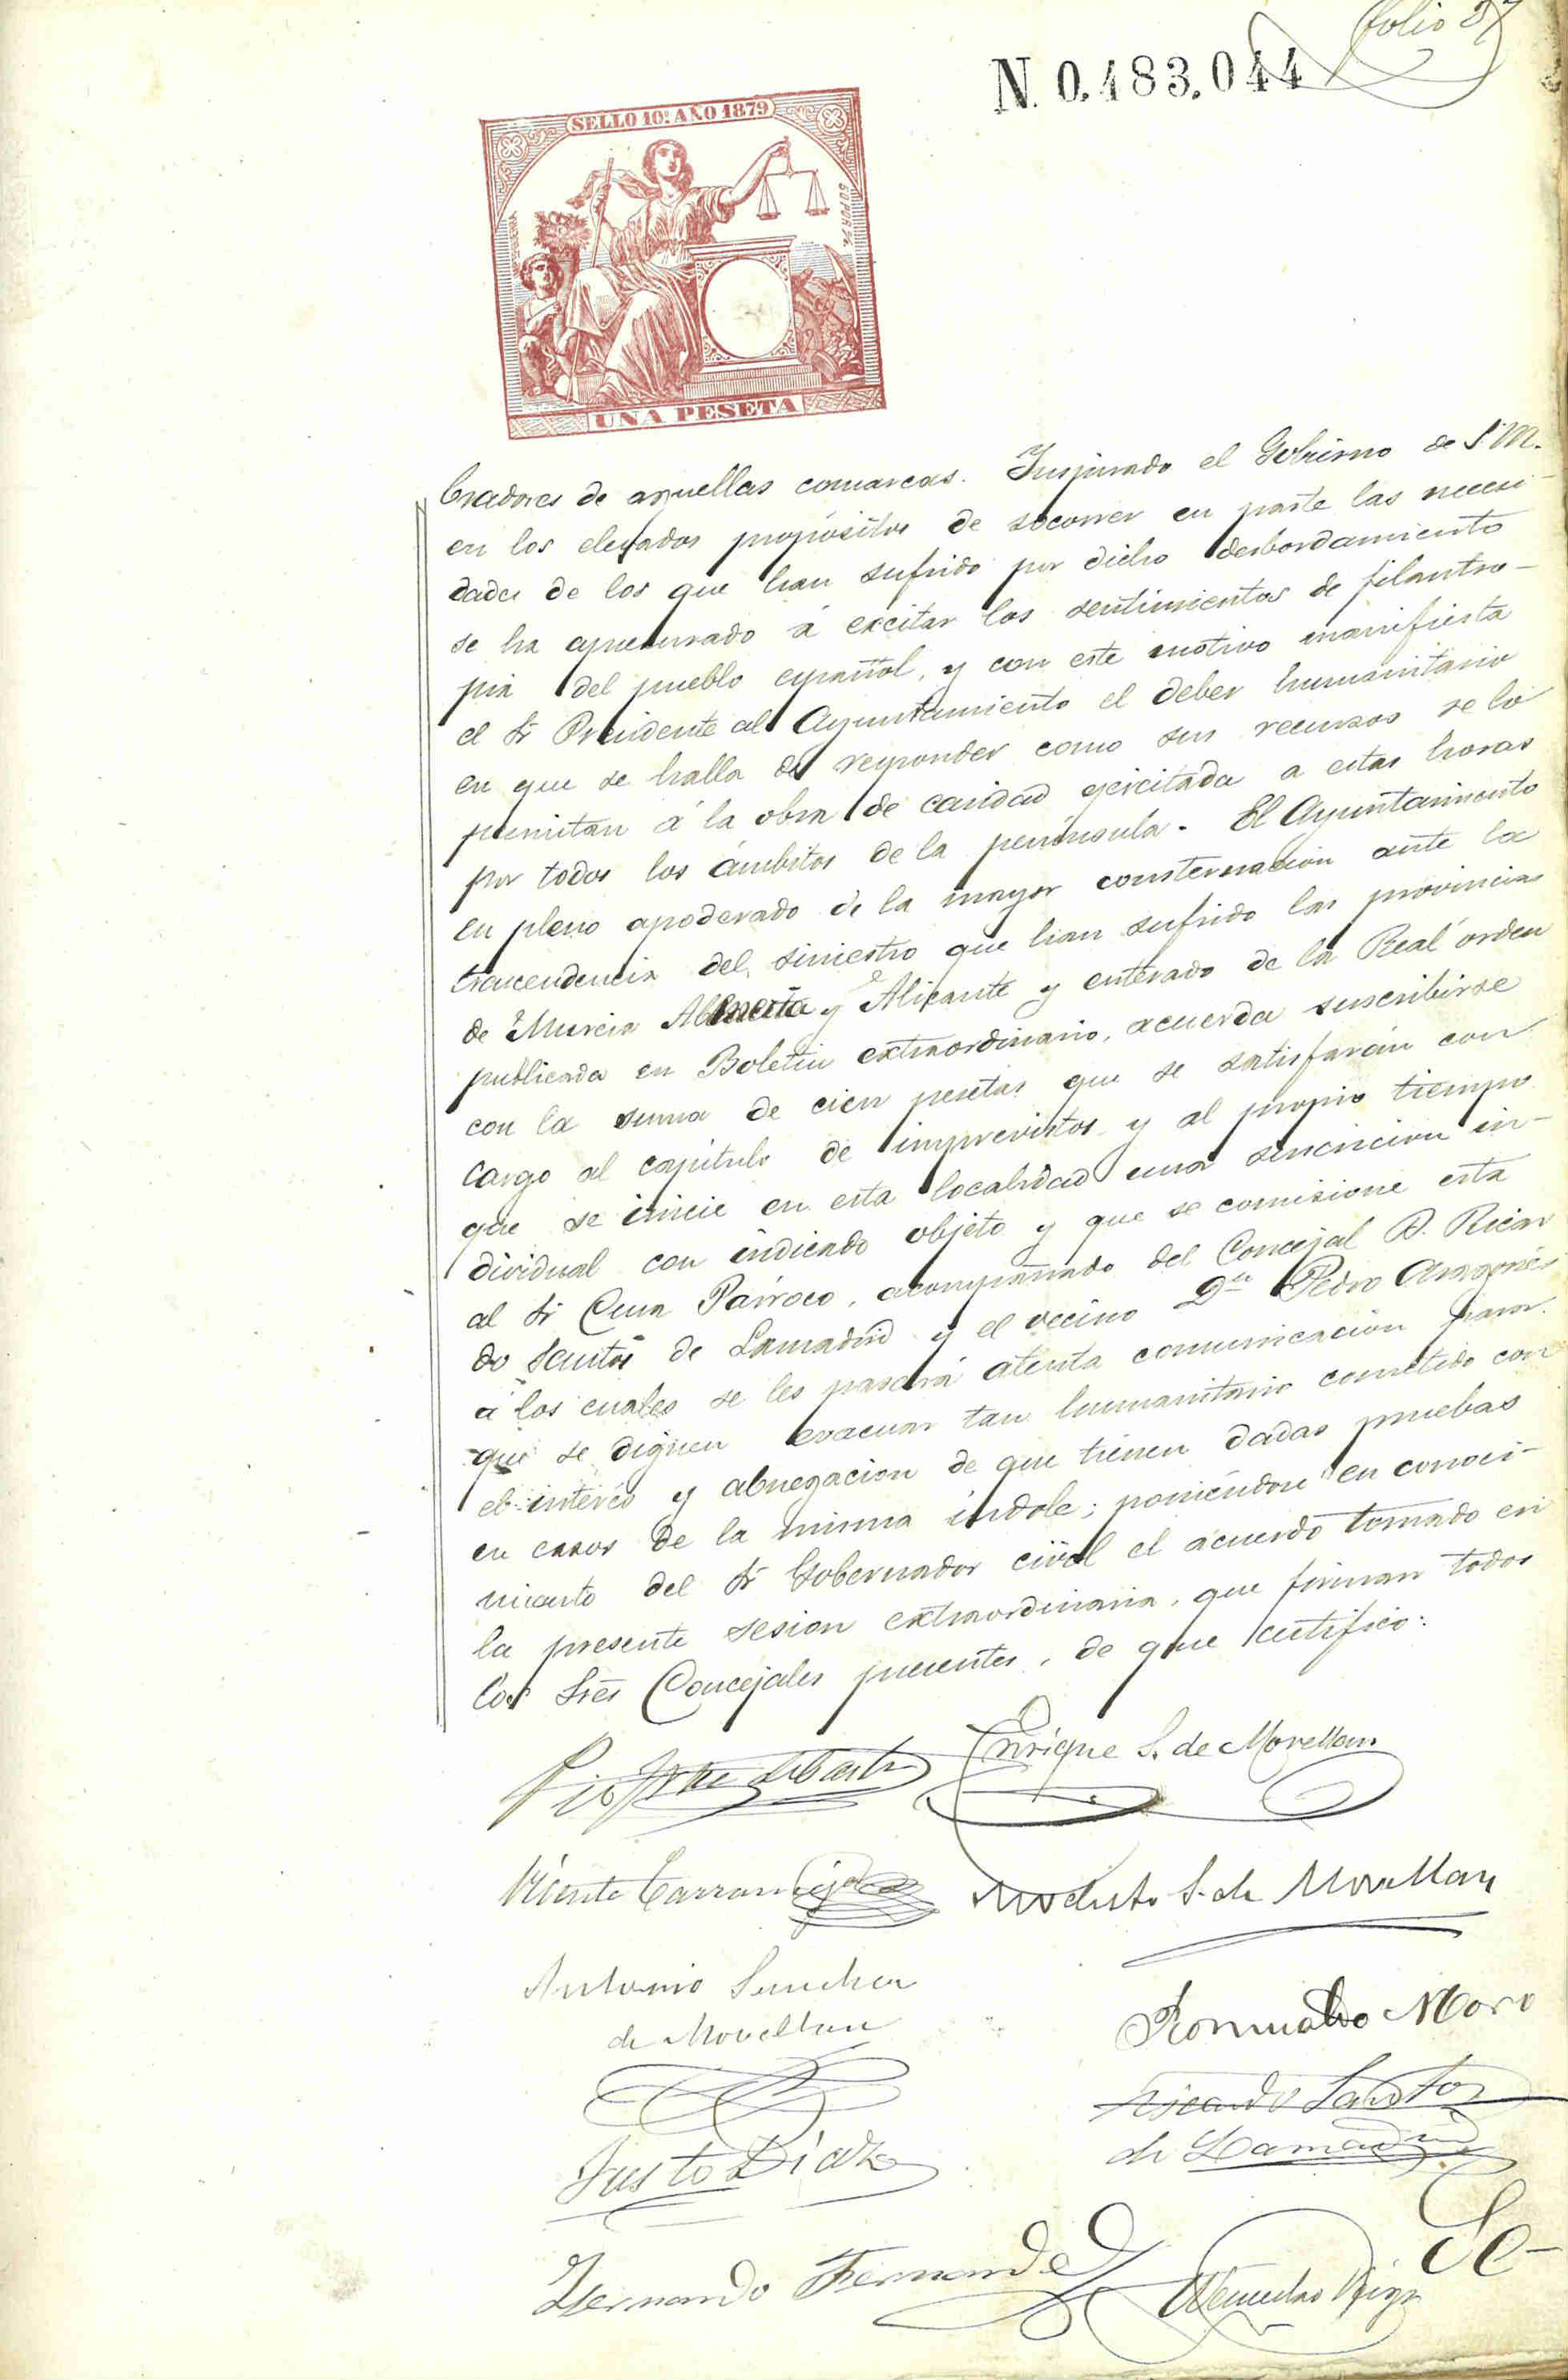 folio 37
N. 0.483.044
SELLO 10º AÑO 1879
UNA PESETA
bradores de aquellas comarcas. Inspirado el Gobierno de S. M.
en los elevados propósitos de socorrer en parte las necesi-
dades de los que han sufrido por dicho desbordamiento
se ha apresurado á excitar los sentimientos de filantro-
pia del pueblo español, y con este motivo manifiesta
el Sr Presidente al Ayuntamiento el deber humanitario
en que se halla de responder como sus recursos se lo
permitan á la obra de caridad ejercitada a estas horas
por todos los ámbitos de la península. El Ayuntamiento
en pleno apoderado de la mayor consternación ante la
trascendencia del siniestro que han sufrido las provincias
de Murcia Almería y Alicante y enterado de la Real orden
publicada en Boletin extraordinario, acuerda suscribirse
con la suma de cien pesetas que se satisfarán con
cargo al capítulo de imprevistos y al propio tiempo
que se inicie en esta localidad una suscricion in-
dividual con indicado objeto y que se comisione esta
al Sr Cura Párroco, acompañado del Concejal D. Ricar
do Santos de Lamadrid y el vecino Dn Pedro Aragonés
á los cuales se les pasará atenta comunicación para
que se dignen evacuar tan humanitario cometido con
el interés y abnegacion de que tienen dadas pruebas
en casos de la misma índole; poniéndose en conoci-
miento del Sr Gobernador civil el acuerdo tomado en
la presente sesion extraordinaria, que firman todos
los Sres Concejales presentes, de que certifico:
Enrique S. de Movellan
Vicente Carranceja
Modesto S. de Movellan
Antonio Sanchez
de Movellan
Romualdo Moro
Ricardo Santos
de Lamadrid
Justo Diaz
Se-
Hernando Fernandez